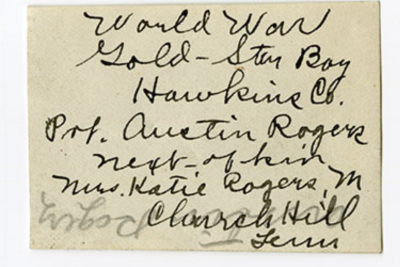 World War
Gold-Star Boy
Hawkins Co.
Pvt. Austin Rogers
next-of kin
Mrs. Katie Rogers, M
Church Hill
Tenn